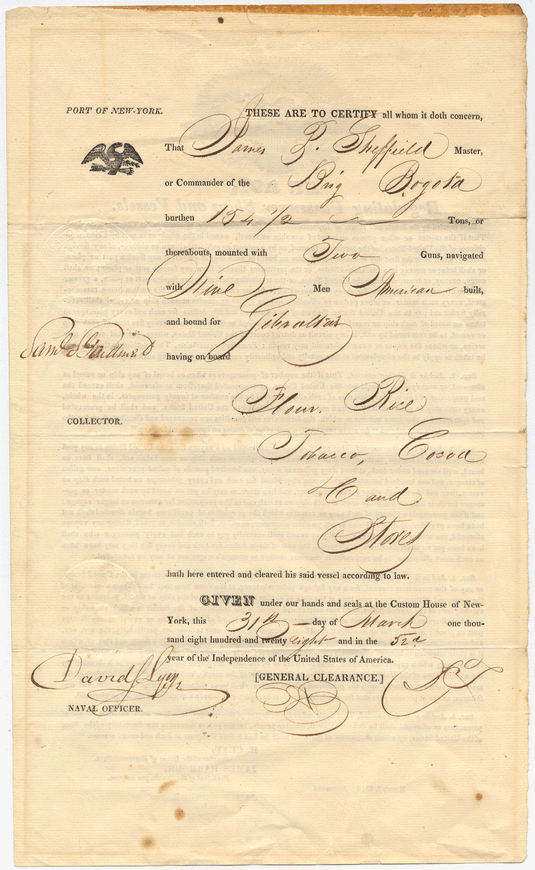 PORT OF NEW-YORK.
THESE ARE TO CERTIFY all whom it doth concern,
That James P. Sheffield Master,
or Commander of the Brig Bogota
burthen 154 1/2 Tons, or
thereabouts, mounted with Two Guns, navigated
with Nine Men American built,
and bound for Gibraltar
having on board
COLLECTOR.
Flour. Rice
Tobacco, Cocoa
&C and
Stores
hath here entered and cleared his said vessel according to law.
GIVEN under our hands and seals at the Custom House of New-
York, this 31st day of March one thou-
sand eight hundred and twenty eight and in the 52d
year of the Independence of the United States of America.
David
[GENERAL CLEARANCE.]
NAVAL OFFICER.